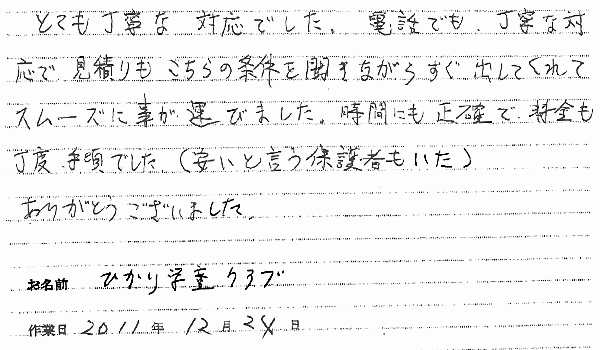 とても丁寧な 対応でした。 電話でも、丁寧な対
応で 見積りも こちらの条件を聞きながらすぐ出してくれて
スムーズに事が運びました。時間にも正確で 料金も
丁度手頃でした (安いと言う保護者もいた)
ありがとうございました。
お名前 ひかり学童クラブ
作業日 2011 年 12 月 24 日